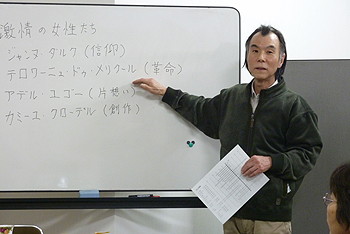 激情の女性たち
ジャンヌ・ダルク(信仰)
テロワーニュ・ドゥ・メリクール(革命)
アデル・ユゴー(片想い)
カミーユ・クローデル(創作)